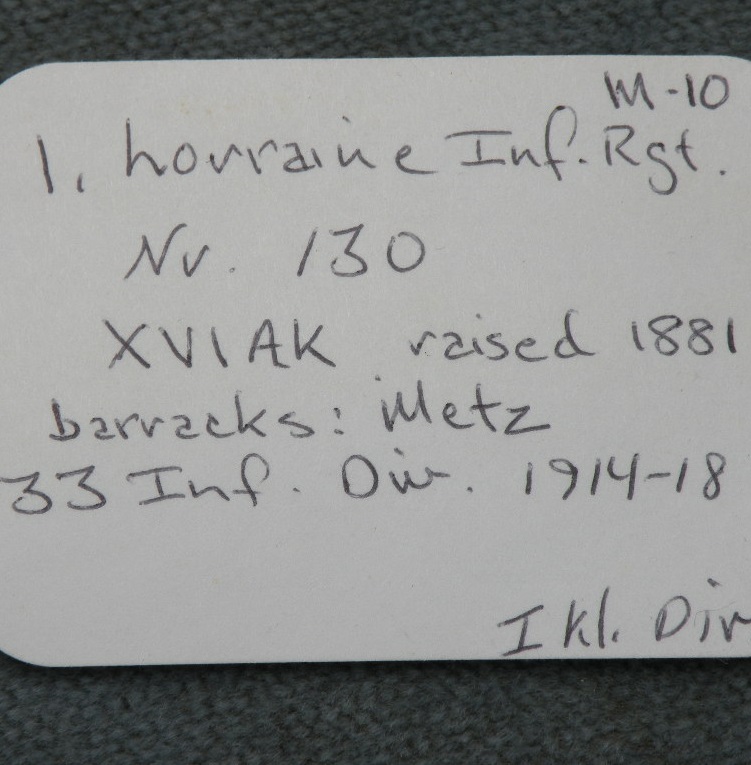 M-10
1. Lorraine Inf. Rgt.
Nr. 130
XVI AK raised 1881
barracks: Metz
33 Inf. Div. 1914-18
I Kl. Div